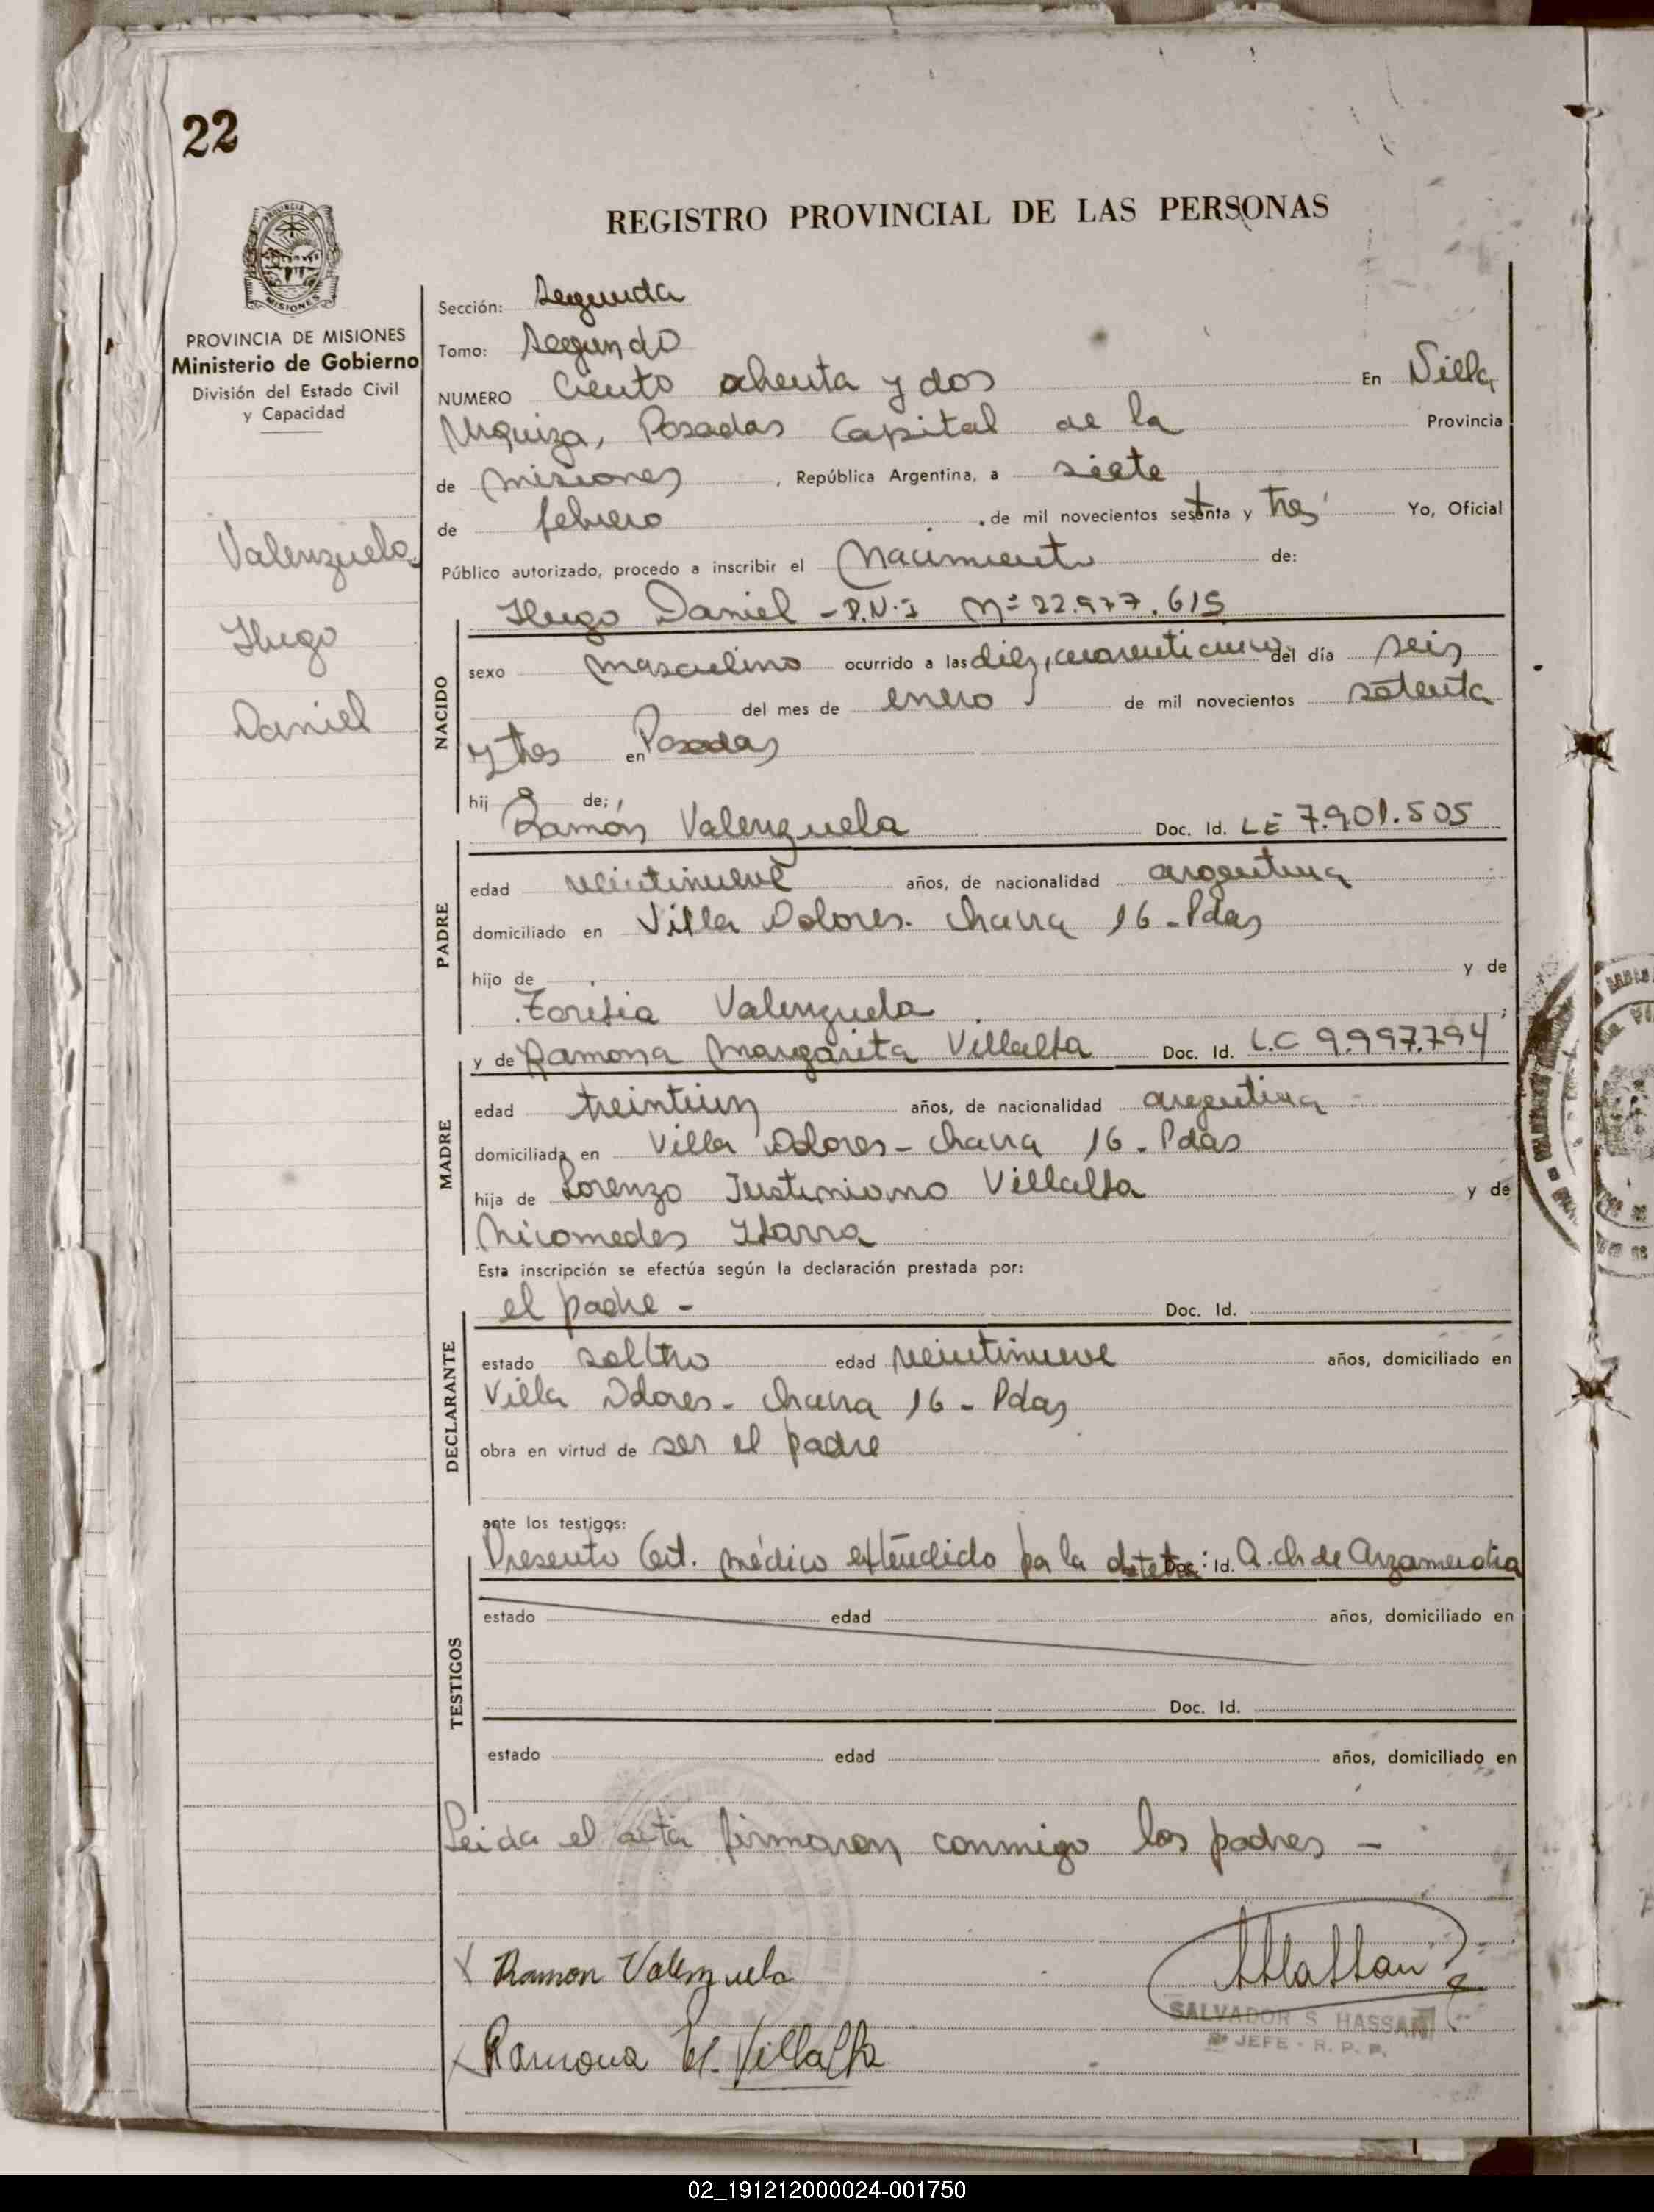 22
REGISTRO PROVINCIAL DE LAS PERSONAS
PROVINCIA DE MISIONES
Ministerio de Gobierno
División del Estado Civil
y Capacidad
Valenzuela
Hugo
Daniel
Sección: Segunda
Tomo: Segundo
NUMERO Ciento ochenta y dos En Villa
Urquiza, Posadas Capital de la Provincia
de Misiones, República Argentina, a siete
de febrero de mil novecientos setenta y tres Yo, Oficial
Público autorizado, procedo a inscribir el Nacimiento de:
Hugo Daniel - D.N.I Nº 22.977.615
NACIDO
sexo masculino ocurrido a las diez, cuarenticinco del día seis
del mes de enero de mil novecientos setenta
y tres en Posadas
hij o de:
Ramón Valenzuela Doc. Id. LE 7.901.505
PADRE
edad veintinueve años, de nacionalidad argentina
domiciliado en Villa Dolores. Chacra 16 - Pdas
hijo de y de
Valenzuela ;
y de Ramona Margarita Villalba Doc. Id. L.C 9.997.794
MADRE
edad treintiun años, de nacionalidad argentina
domiciliada en Villa Dolores - Chacra 16 - Pdas
hija de Lorenzo Justiniano Villalba y de
Nicomedes Ybarra
Esta inscripción se efectúa según la declaración prestada por:
el padre - Doc. Id.
DECLARANTE
estado soltro edad veintinueve años, domiciliado en
Villa Dolores - Chacra 16 - Pdas
obra en virtud de ser el padre
ante los testigos:
Presento Cert. médico extendido por la Doc. Id. A. Ch de Arzamendia
TESTIGOS
estado edad años, domiciliado en
Doc. Id.
estado edad años, domiciliado en
Leida el acta firmaron conmigo los padres -
x Ramon Valenzuela
x Ramona M. Villalba
SALVADOR S. HASSAN
JEFE - R. P. P.
02_191212000024-001750